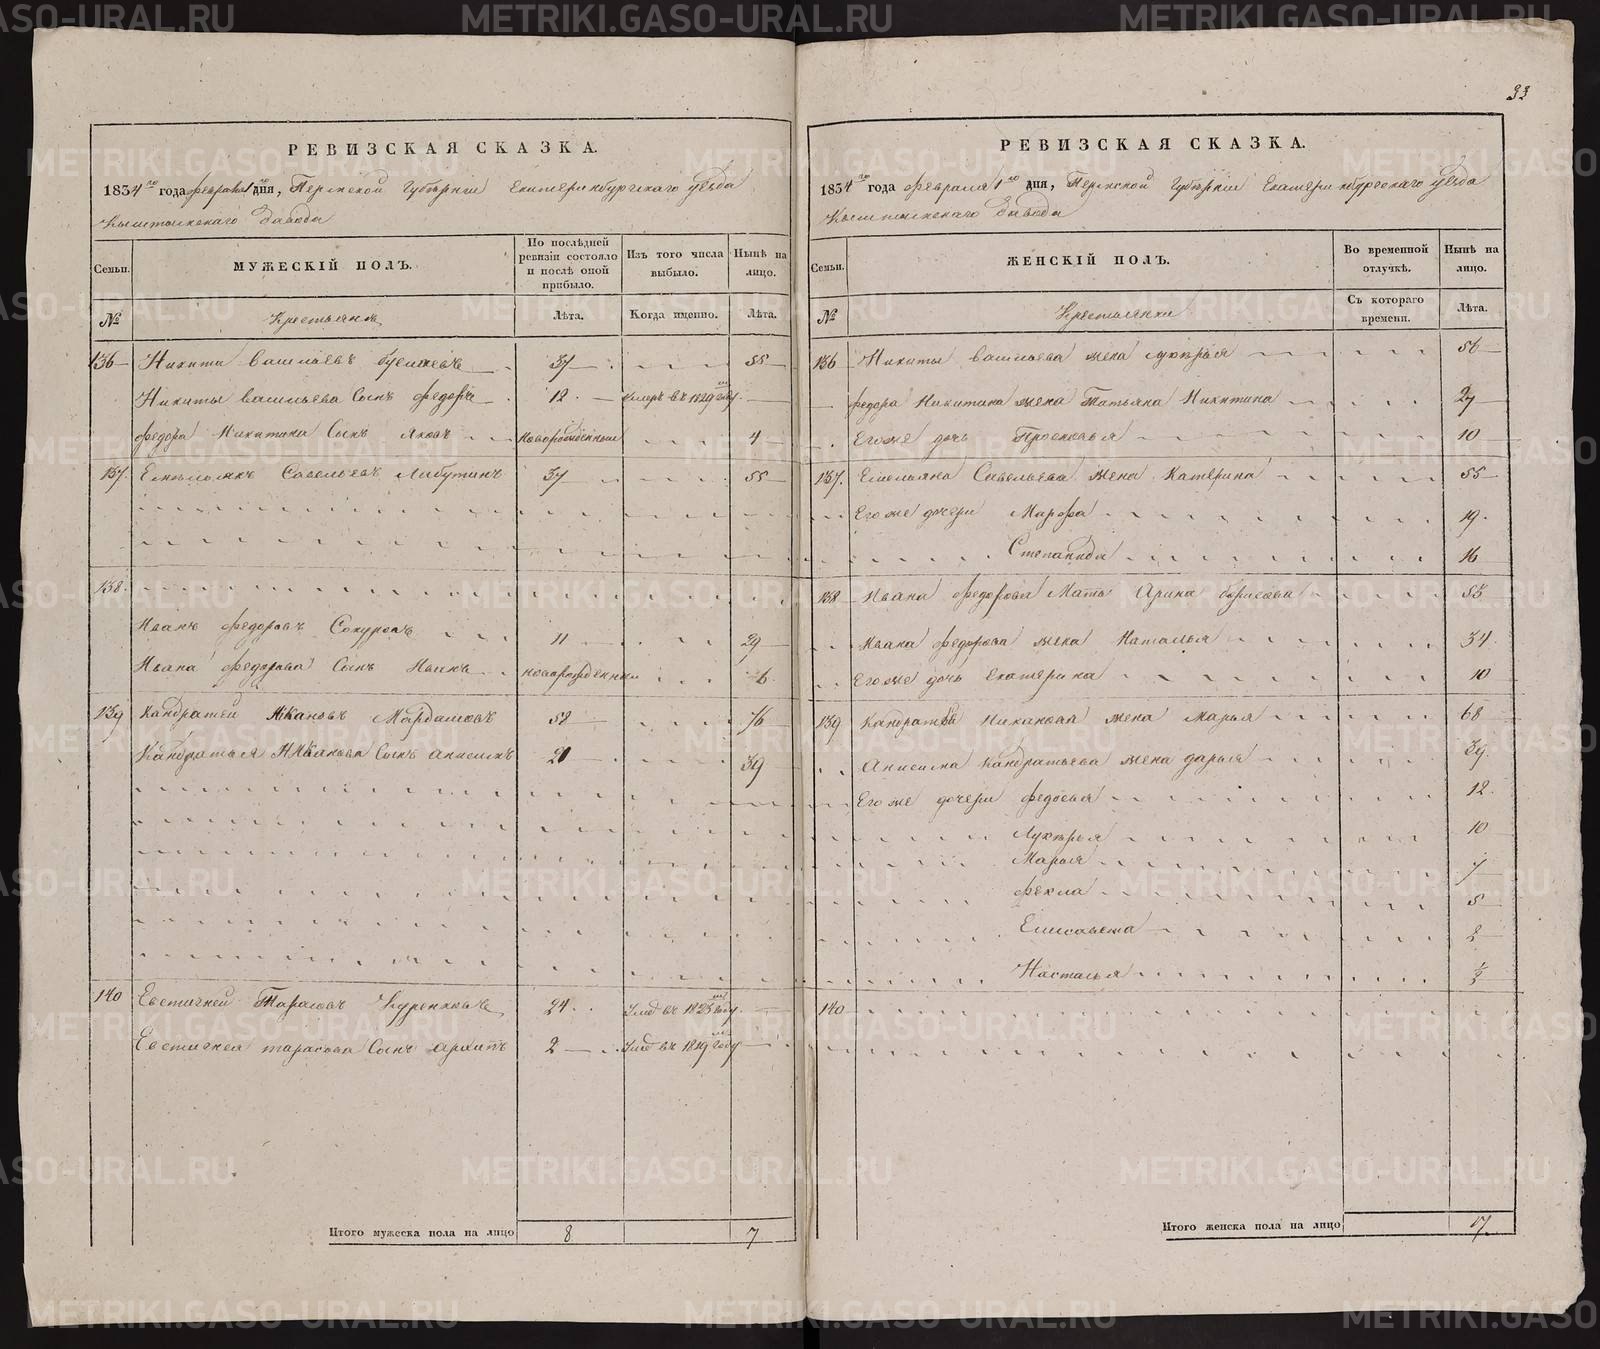 33
РЕВИЗСКАЯ СКАЗКА.
1834го года февраля 1го дня, Пермской Губернiи Екатеринбургскаго уезда
Кыштымскаго Завода
Семьи.
МУЖЕСКIЙ ПОЛЪ.
По послѣдней ревизiи состояло и послѣ оной прибыло.
Изъ того числа выбыло.
Нынѣ на лицо.
№
Крестьянъ
Лѣта.
Когда именно.
Лѣта.
136 Никита Васильевъ 37 55
Никиты Васильева Сынъ Федоръ 12 Умеръ въ 1829 году
Федора Никитина Сынъ Яковъ новорожденный 4
137. Емельянъ Савельевъ Лабутинъ 37 55
138.
Иванъ Федоровъ 11 29
Ивана Федорова Сынъ Иванъ новорожденный 6
139 Кандратей Мардашовъ 58 76
Кандратья Сынъ Анисимъ 21 39
140 Евстигней Тарасовъ Куренковъ 24 Умеръ въ 1825 году
Евстигнея Тарасова Сынъ Архипъ 2 въ 1819 году
Итого мужеска пола на лицо 8 7
РЕВИЗСКАЯ СКАЗКА.
1834го года февраля 1го дня, Пермской Губернiи Екатеринбургскаго уезда
Кыштымскаго Завода
Семьи.
ЖЕНСКIЙ ПОЛЪ.
Во временной отлучкѣ.
Нынѣ на лицо.
№
Крестьянки
Съ котораго времени.
Лѣта.
136 Никиты Васильева жена Лукерья 56
Федора Никитина жена Татьяна Никитина 27
Егоже дочь Просковья 10
137. Емельяна Савельева жена Катерина 55
Егоже дочери Марфа 19
Степанида 16
138 Ивана Федорова Мать Арина Борисова 53
Ивана Федорова жена Наталья 34
Егоже дочь Екатерина 10
139 Кандратья жена Марья 68
Анисима Кандратьева жена Дарья 39
Егоже дочери Федосья 12
Лукерья 10
Марья 7
Фекла 5
Елисавета 2
Насталья
140
Итого женска пола на лицо 17
METRIKI.GASO-URAL.RU